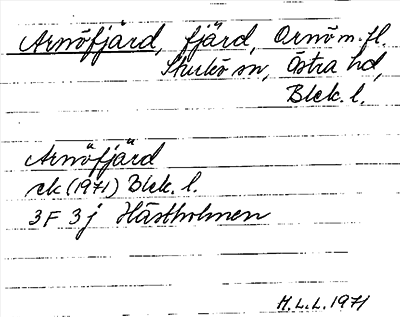 Arnöfjärd, fjärd, Ornö m.fl.
Sturkö sn, Östra hd,
Blek. l.
Arnöfjärd
ek (1971) Blek. l.
3F 3j Hästholmen
H.L.L. 1971